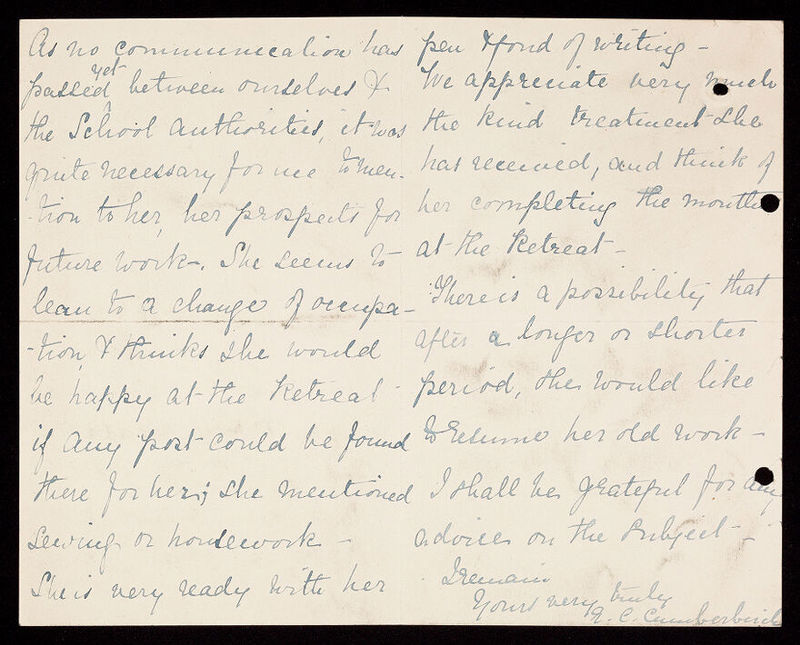 As no communication has
passed yet between ourselves &
the School authorities, it was
quite necessary for me to men-
-tion to her, her prospects for
future work. She seems to
lean to a change of occupa-
-tion, & thinks she would
be happy at the Retreat
if any post could be found
there for her; she mentioned
sewing or housework -
She is very ready with her
pen & fond of writing -
We appreciate very much
the kind treatment she
has received, and think of
her completing the month
at the Retreat -
There is a possibility that
after a longer or shorter
period, she would like
to resume her old work -
I shall be grateful for any
advice on the subject -
I remain
Yours very truly
C. Cumberbirch